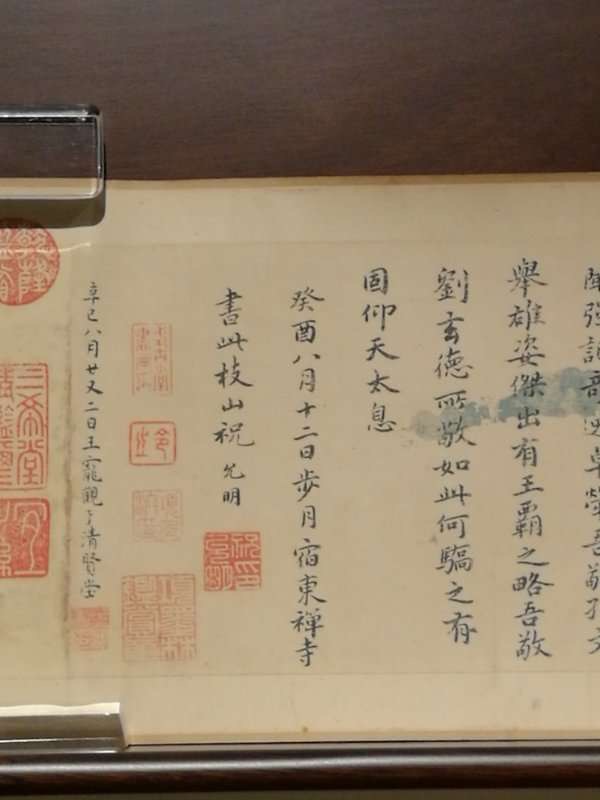 強記奇逸卓犖吾敬孔文
舉雄姿傑出有王霸之略吾敬
劉玄德所敬如此何驕之有
固仰天太息
癸酉八月十二日步月宿東禪寺
書此枝山祝允明
辛巳八月廿又二日王寵觀于清賢堂
三希堂